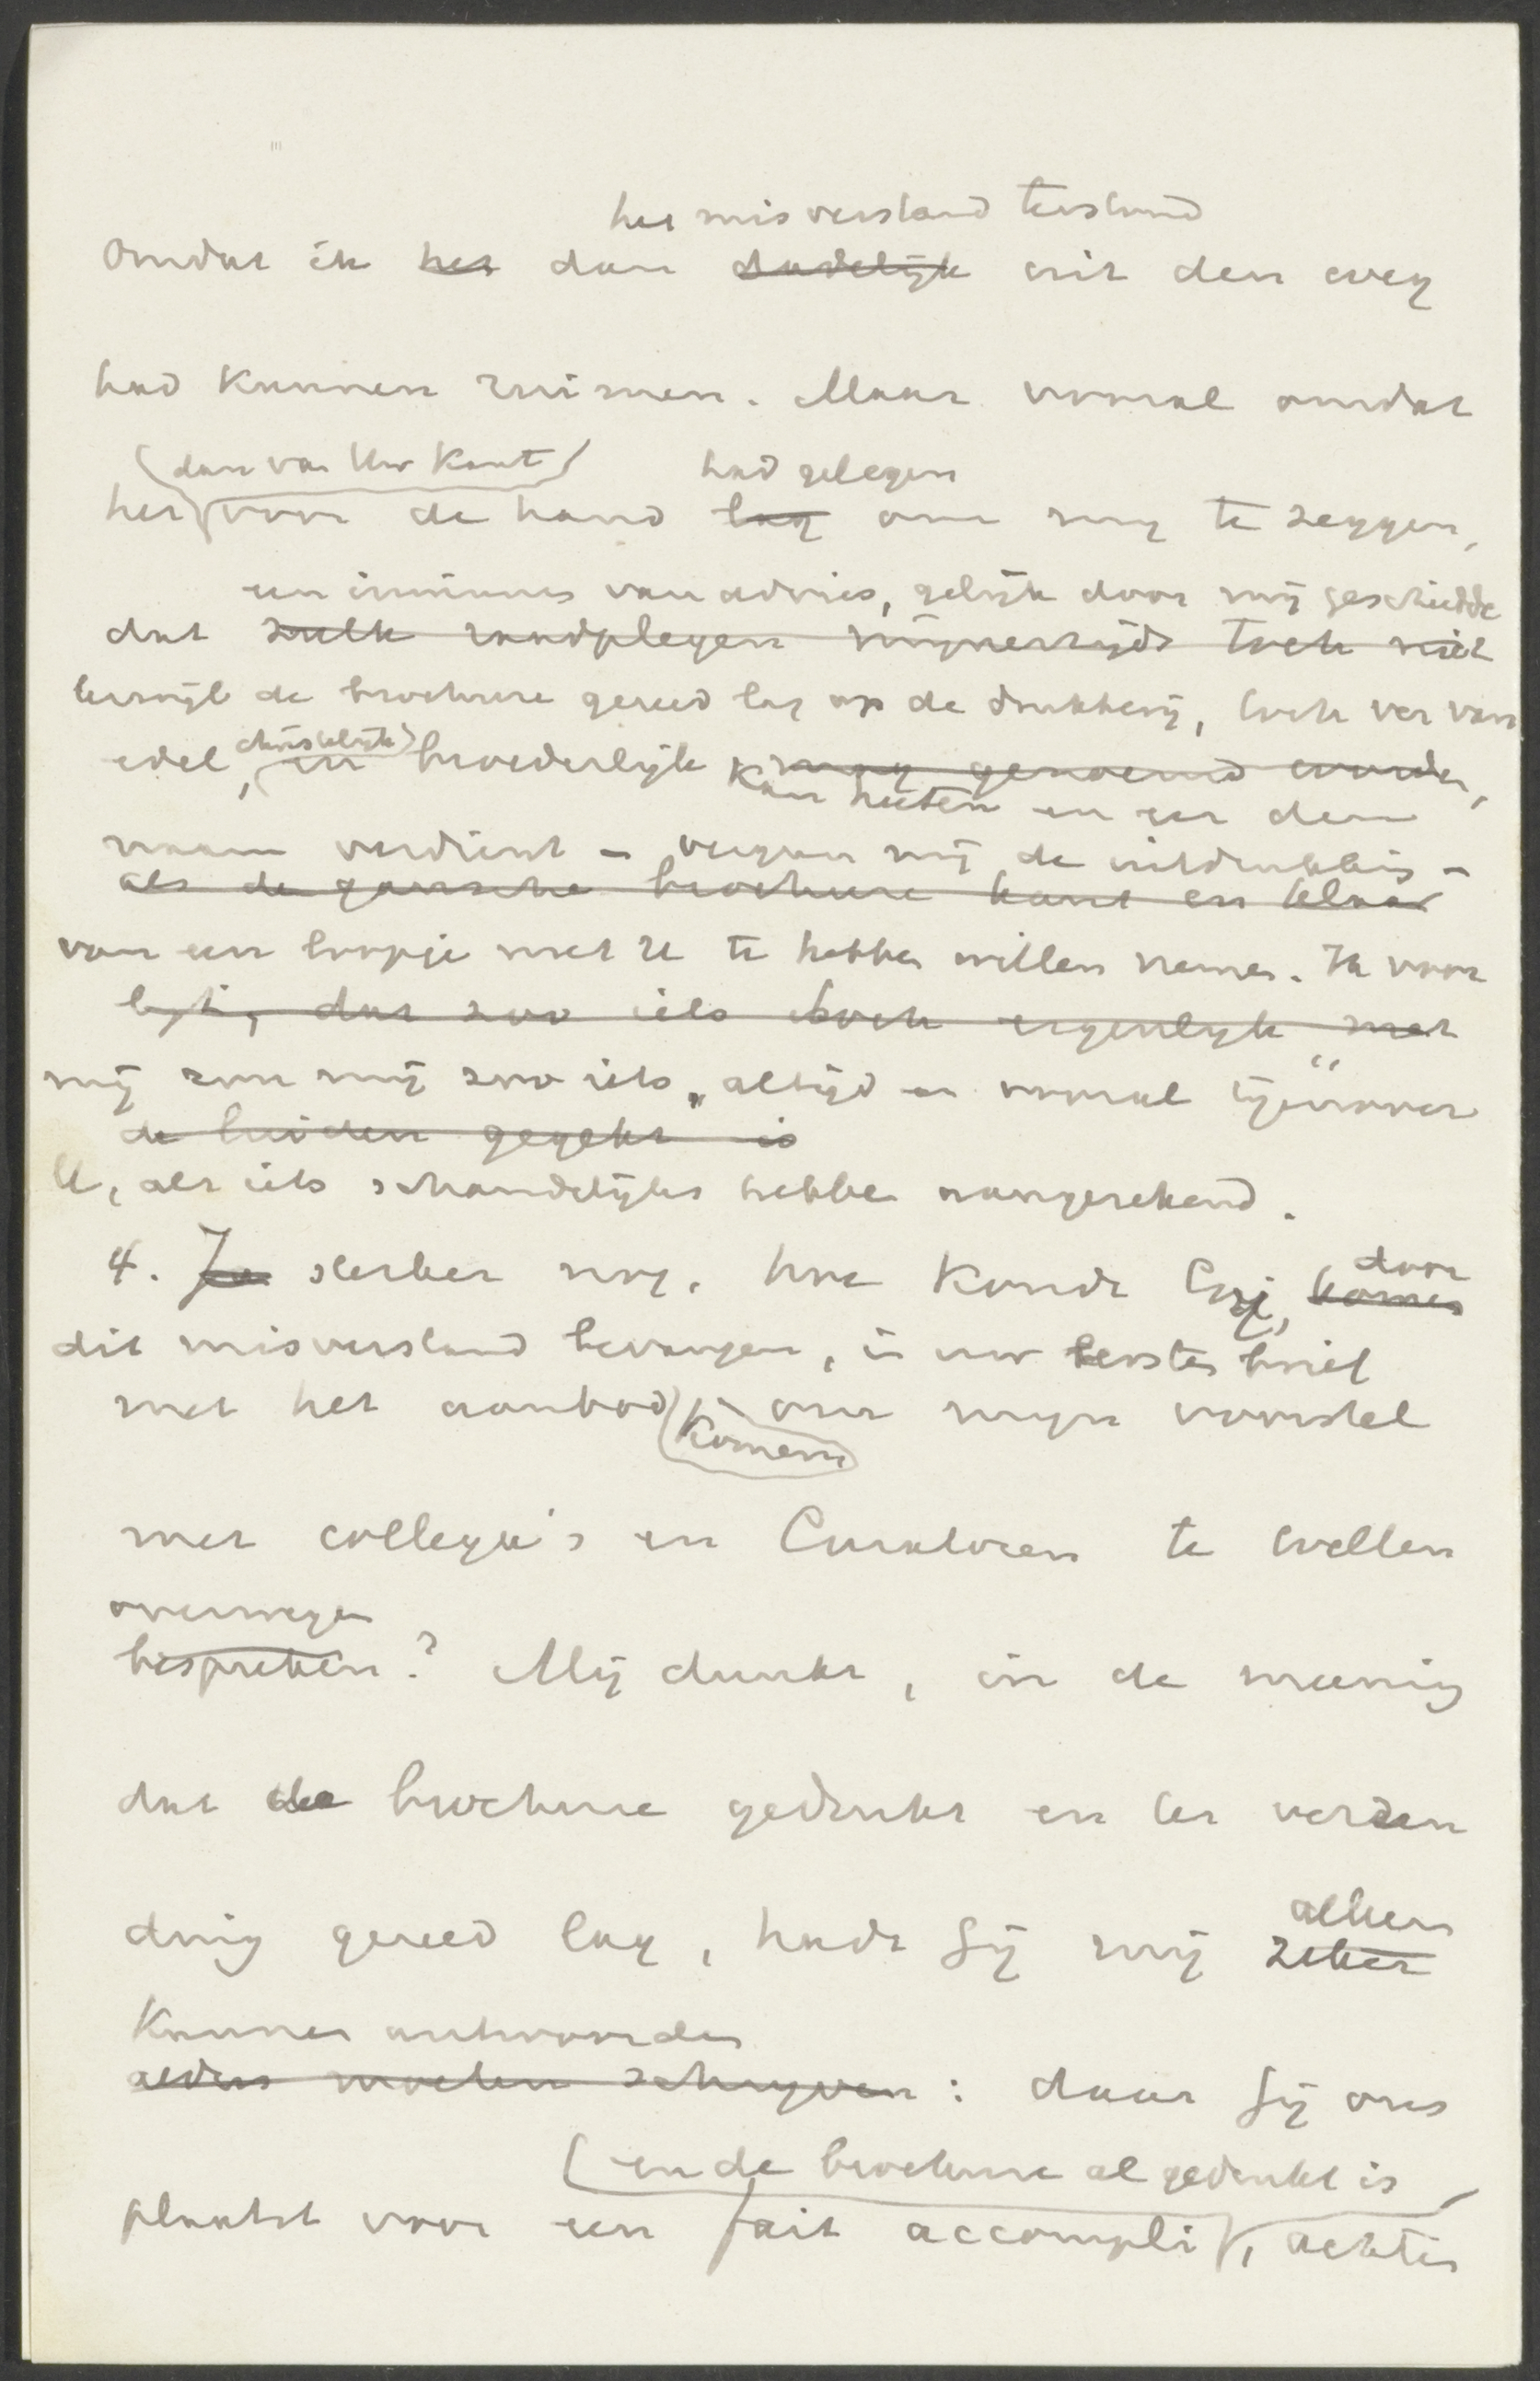 het misverstand terstond
Omdat ik het dan dadelijk uit den weg
had kunnen ruimen. Maar vooral omdat
(dan van Uw kant) had gelegen
het voor de hand lag om mij te zeggen,
een innemen van advies, gelijk door mij geschiedde
dat zulk raadplegen mijnerzijds toch niet
terwijl de brochure gereed lag op de drukkerij, toch ver van
edel, christelijk en broederlijk mag genoemd worden,
kan heeten en eer den
naam verdient - vergun mij de uitdrukking -
als de gansche brochure kant en klaar
van een loopje met U te hebben willen nemen. Ik voor
ligt, dat zoo iets toch eigenlijk met
mij zou mij zoo iets, altijd en vooral tegenover
de luiden gegekt is
U, als iets schandelijks hebben aangerekend.
4. Ja sterker nog, hoe kondt Gij, door
komen
dit misverstand bevangen, in uw eersten brief
met het aanbod om mijn voorstel
komen
met collega's en Curatoren te willen
overwegen
bespreken? Mij dunkt, in de meening
dat de brochure gedrukt en ter verzen
ding gereed lag, hadt Gij mij alleen
zeker
kunnen antwoorden
aldus moeten schrijven: daar Gij ons
(en de brochure al gedrukt is
plaatst voor een fait accompli, achten